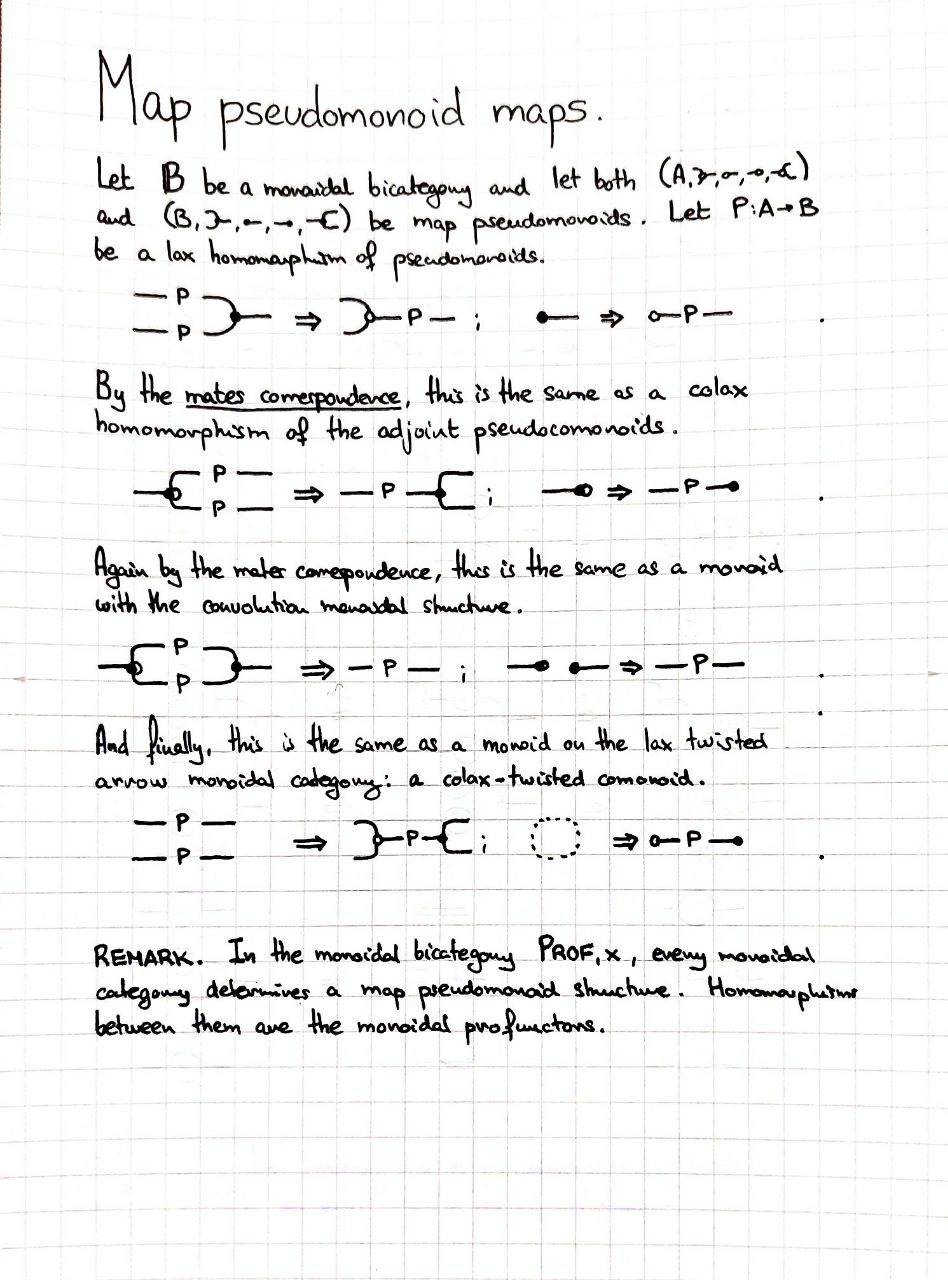 Map pseudomonoid maps.
Let B be a monoidal bicategory and let both (A,
and (B, ) be map pseudomonoids. Let P:A→B
be a lax homomorphism of pseudomonoids.
P
P ⇒ P ; ⇒ P .
By the mates correspondence, this is the same as a colax
homomorphism of the adjoint pseudocomonoids.
P
P ⇒ P ; ⇒ P .
Again by the mates correspondence, this is the same as a monoid
with the convolution monoidal structure.
P
P ⇒ P ; ⇒ P .
And finally, this is the same as a monoid on the lax twisted
arrow monoidal category: a colax-twisted comonoid.
P
P ⇒ P ; ⇒ P .
REMARK. In the monoidal bicategory PROF,×, every monoidal
category determines a map pseudomonoid structure. Homomorphisms
between them are the monoidal profunctors.